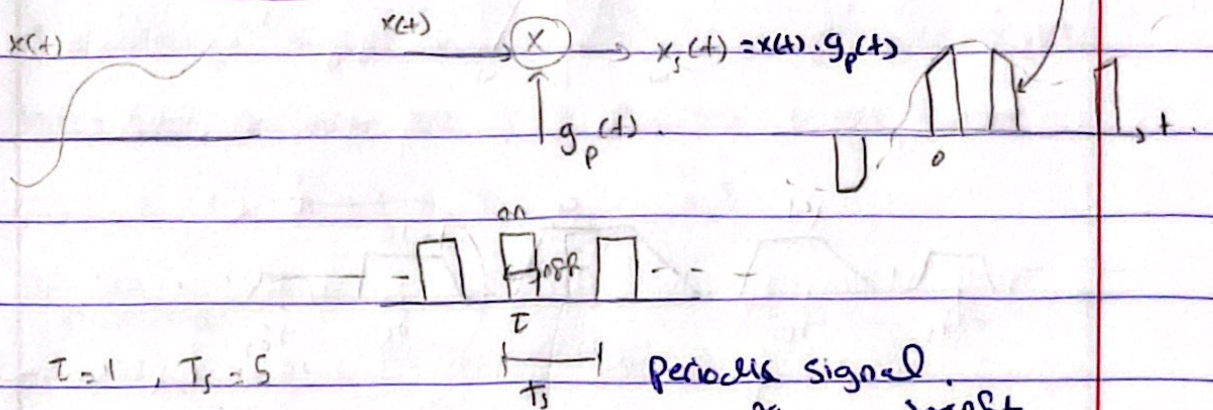 x(t)
x(t) → X → x_s(t) = x(t) . g_p(t)
↑ g_p(t) .
0
t .
on
off
τ
τ = 1 , T_s = 5
T_s
periodic signal .